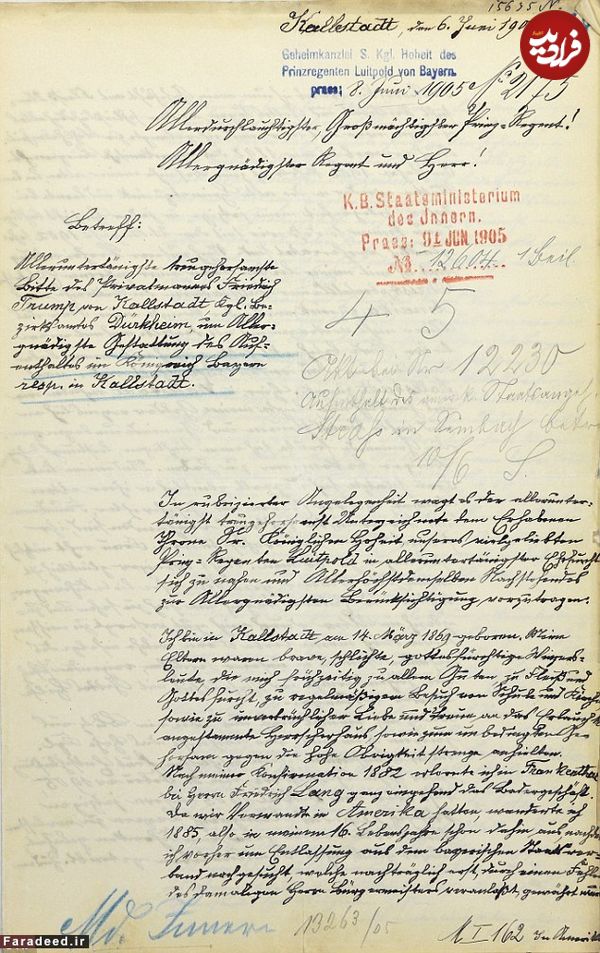 15675 N.
Kallstadt, den 6. Juni 190
فرادید
Geheimkanzlei S. Kgl. Hoheit des
Prinzregenten Luitpold von Bayern.
praes; 8. Juni 1905 No 2175
Allerdurchlauchtigster, Großmächtigster Prinz-Regent!
Allergnädigster Regent und Herr!
K.B. Staatsministerium
des Innern.
Praes: 91 JUN 1905
No 12604. 1 Beil.
Betreff:
Alleruntertänigste treugehorsamste
Bitte des Privatmannes Friedrich
Trump von Kallstadt Kgl. Be-
zirksamts Dürkheim, um Aller-
gnädigste Gestattung des Auf-
enthaltes im Königreich Bayern
resp. in Kallstadt.
4 5
12230
Aufenthalt des amerik. Staatsangeh.
in Sembach
10/6 S.
In rubrizierter Angelegenheit wagt es der allerunter-
tänigst treugehorsamst Unterzeichnete dem Erhabenen
Throne Sr. Königlichen Hoheit unseres vielgeliebten
Prinz-Regenten Luitpold in alleruntertänigster Ehrfurcht
sich zu nahen und Allerhöchstdemselben Nachstehendes
zur Allergnädigsten Berücksichtigung vorzutragen.
Ich bin in Kallstadt am 14. März 1869 geboren. Meine
Eltern waren brave, schlichte, gottesfürchtige Winzers-
leute, die mich frühzeitig zu allem Guten zu Fleiß und
Gottesfurcht, zu regelmäßigem Besuch von Schule und Kirche
sowie zu unverbrüchlicher Liebe und Treue an das Erlauchte
angestammte Herrscherhaus, sowie zum unbedingten Ge-
horsam gegen die hohe Obrigkeit strenge anhielten.
Nach meiner Konfirmation 1882 erlernte ich in Frankenthal
bei Herrn Friedrich Lang ganz eingehend das Badergeschäft.
Da wir Verwandte in Amerika hatten, wanderte ich
1885, also in meinem 16. Lebensjahre schon dahin aus, nachdem
ich vorher um Entlassung aus dem bayerischen Staatsver-
band nachgesucht, welche nachträglich erst, durch einen Fehler
des damaligen Herrn Bürgermeisters veranlaßt, gewährt
Md. Innern 13263/05
M I 162 In Amerika
Faradeed.ir